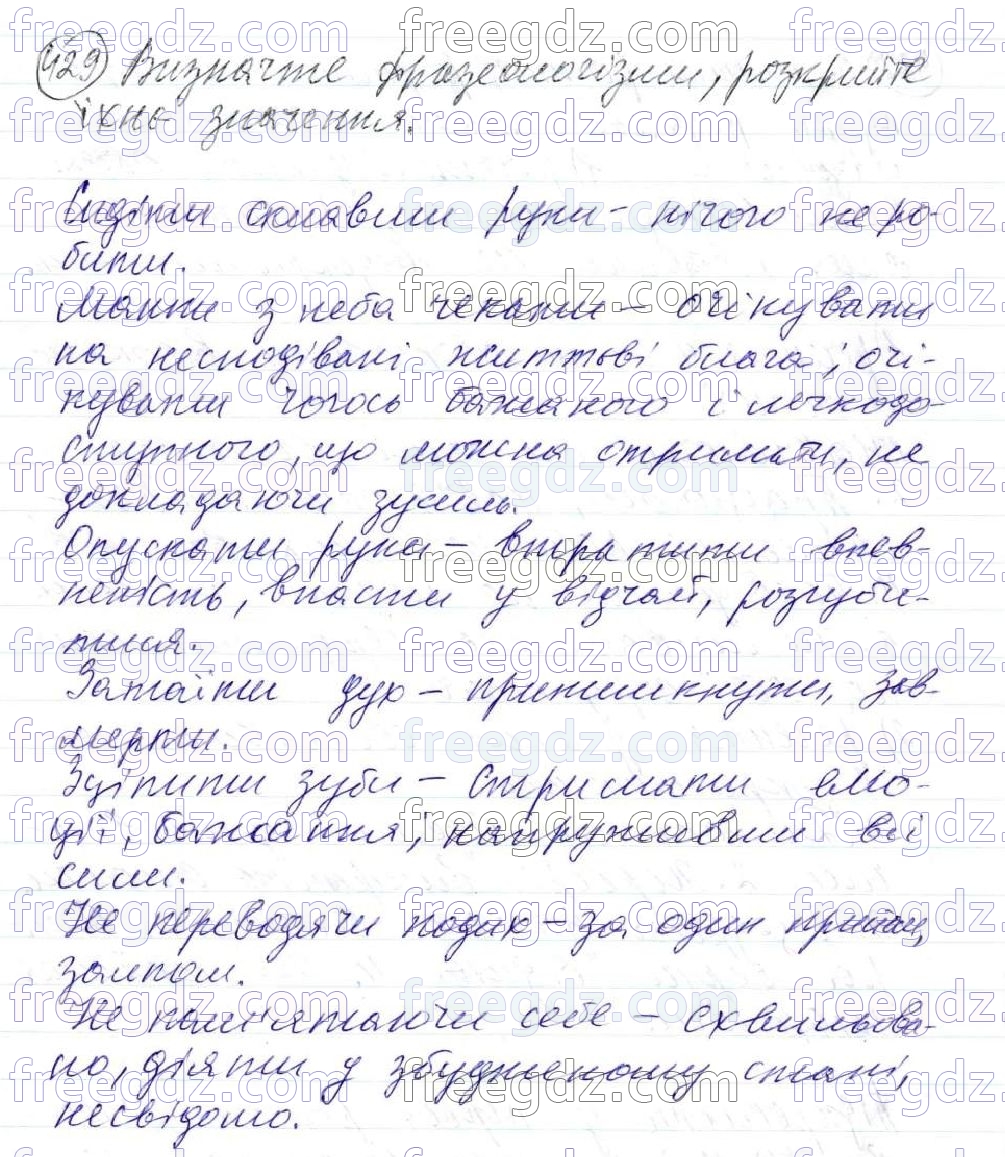 429 Визначте фразеологізми, розкрийте
їхнє значення.
Сидіти склавши руки – нічого не ро-
бити.
Манни з неба чекати – очікувати
на несподівані життєві блага; очі-
кувати чогось бажаного і легкодо-
ступного, що можна отримати, не
докладаючи зусиль.
Опускати руки – втратити впев-
неність, впасти у відчай, розгуби-
тися.
Затаїти дух – притихнути, зав-
мерти.
Зціпити зуби – стримати емо-
ції, бажання, напруживши всі
сили.
Не переводячи подих – за один прийом,
залпом.
Не пам'ятаючи себе – схвильова-
но, діяти у збудженому стані,
несвідомо.
freegdz.com